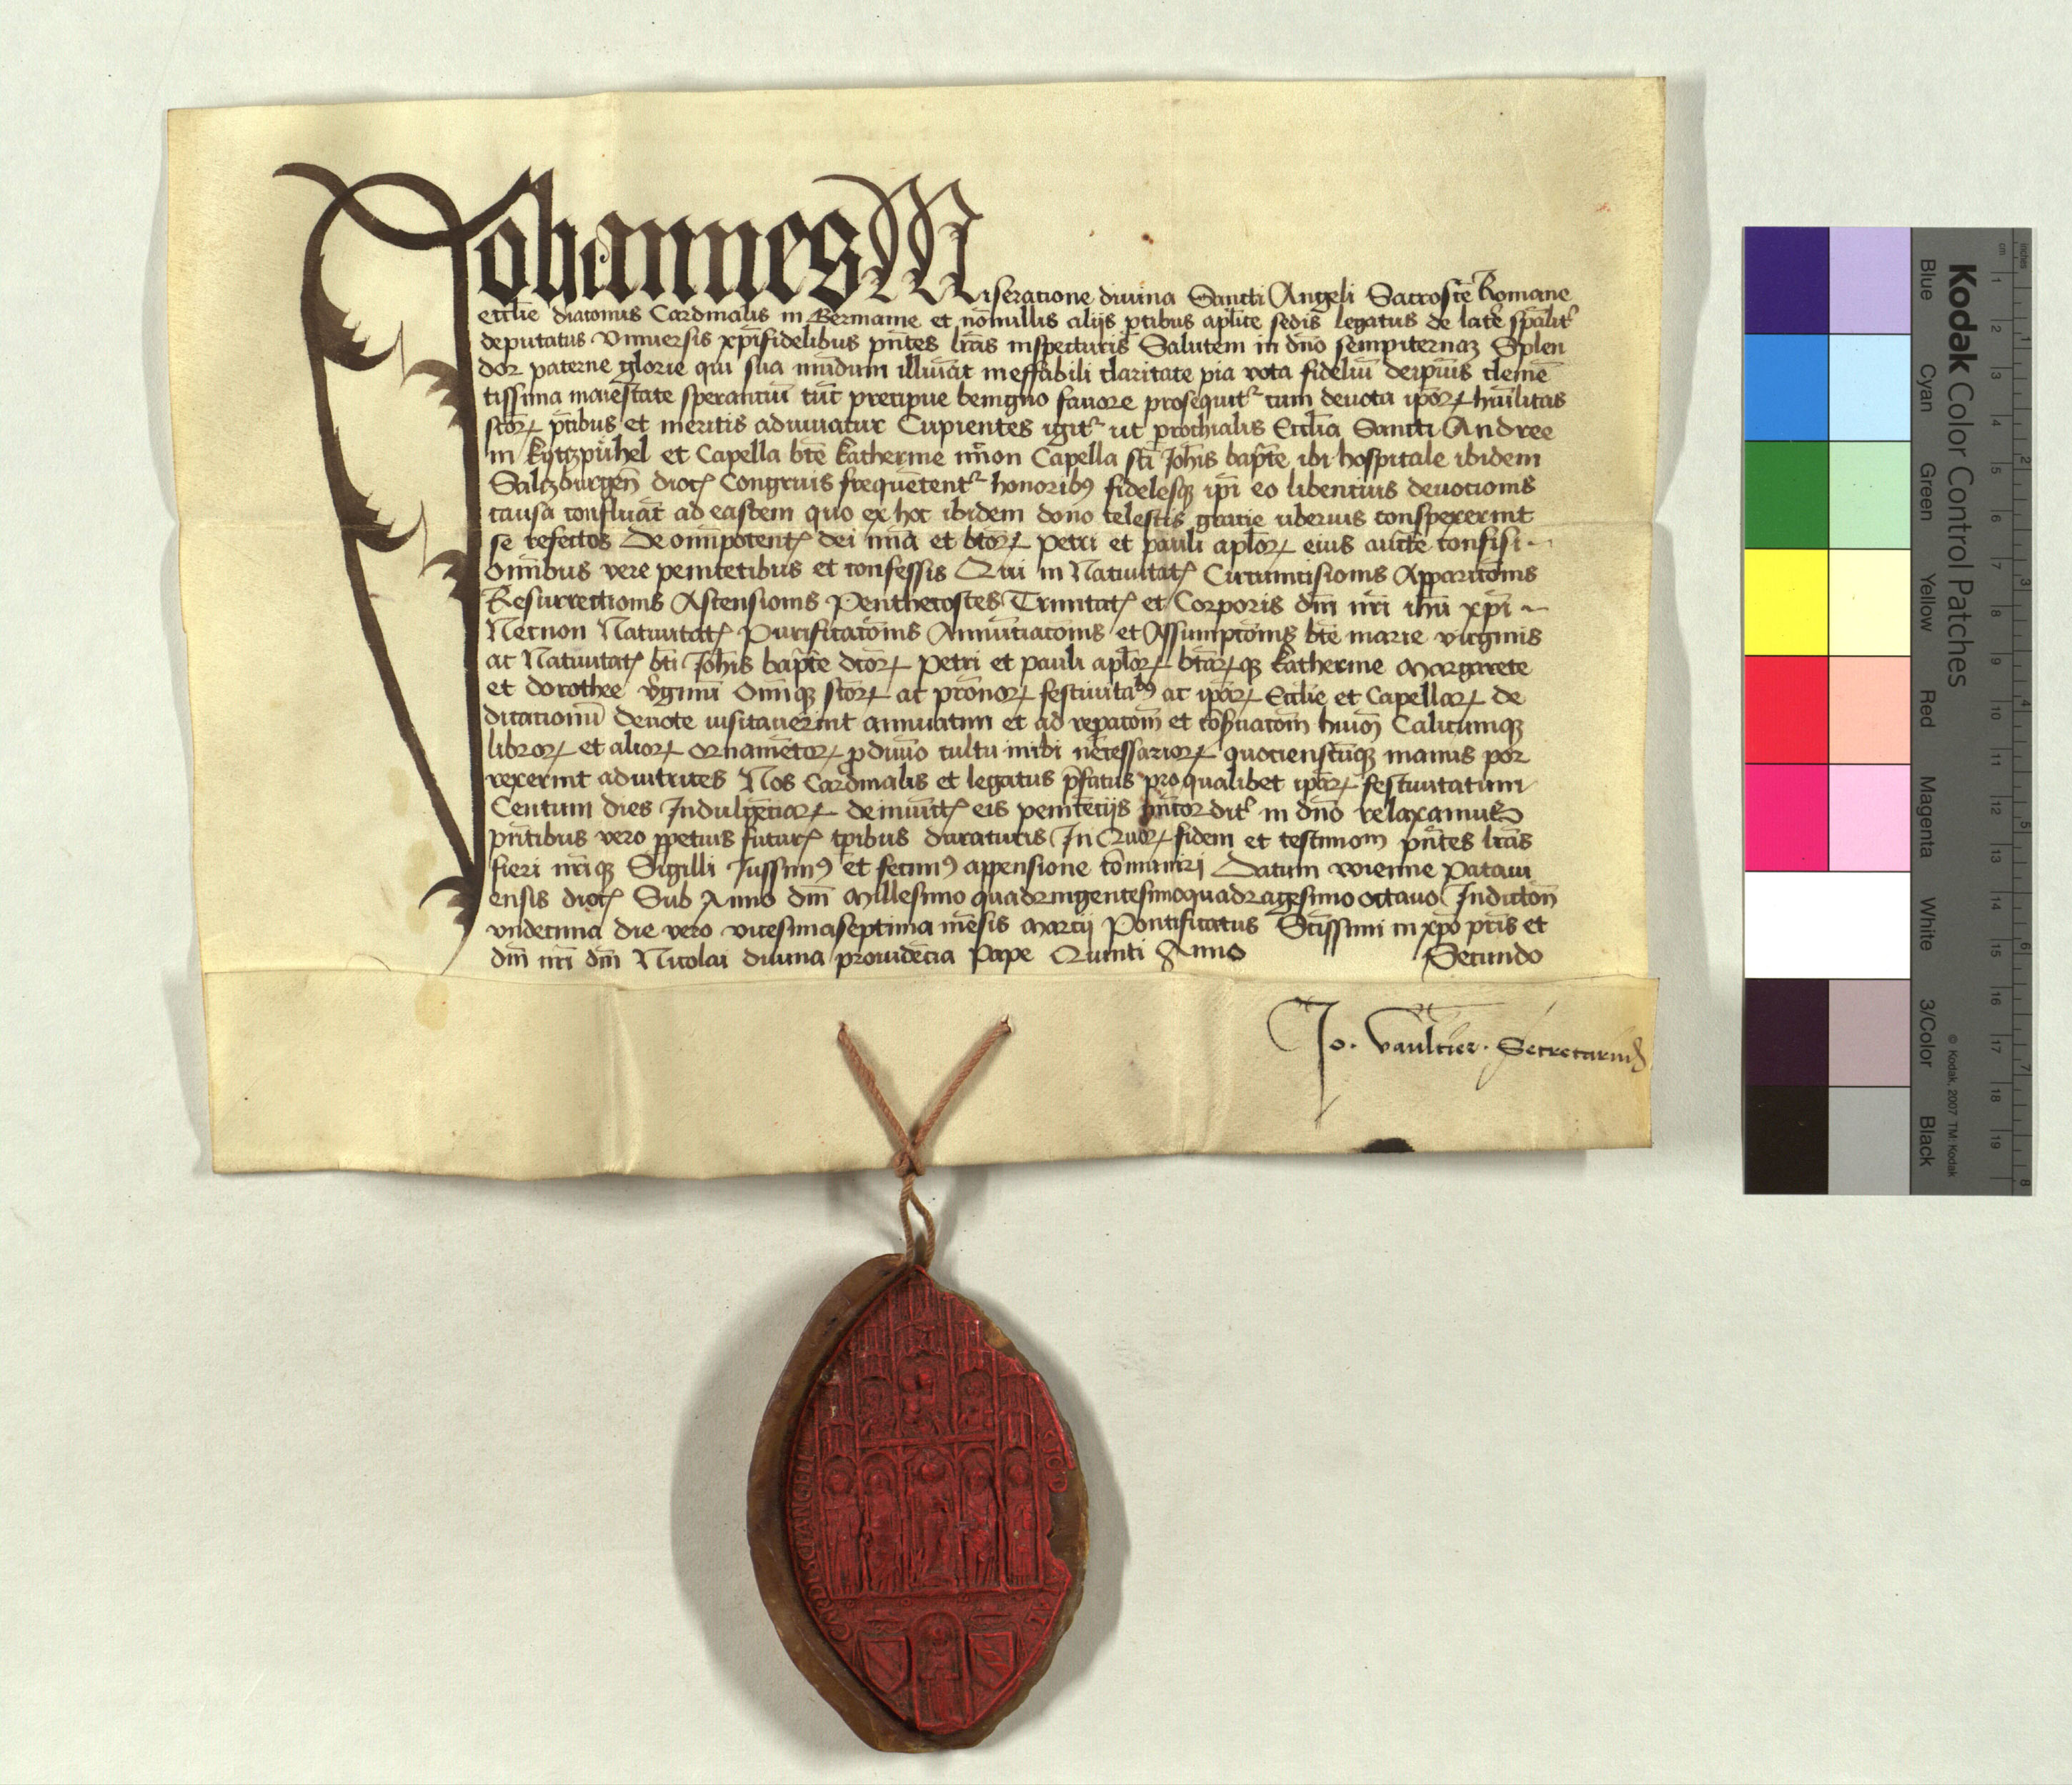 Johannes Miseratione divina Sancti Angeli Sacroste Romane
ecclie diaconus Cardinalis in Germanie et nonnullis alijs ptibus aplice sedis legatus de late spalit
deputatus Universis xpifidelibus pntes lras inspecturis Salutem in dno sempiternaz Splen
dor paterne glorie qui sua mundum illuiat ineffabili claritate pia vota fideliu de ipius cleme
tissima maiestate sperantiu tuc precipue benigno favore prosequit cum devota ipor huilitas
scor pcibus et meritis adiuvatur Cupientes igit ut prochialis Ecclia Sancti Andree
in kytzpuhel et Capella bte katherine nnon Capella sti Johis bapte ibi hospitale ibidem
Saltzburgen dioc Congruis frequetent honorib9 fidelesq ipi eo libentius devotionis
causa confluat ad easdem quo ex hoc ibidem dono celestis gratie uberius conspexerint
se refectos De omipotent dei mia et btor Petri et pauli aplor eius aucte confisi
omibus vere penitetibus et confessis Qui in Nativitat Circumcisionis Apparitois
Resurrectionis Ascensionis Penthecostes Trinitat et Corporis dni nri ihu xpi
Necnon Nativitat Purificatois Annuciatois et Assumptois bte marie virginis
ac Nativitat bti Johis bapte dcor Petri et pauli aplor btarq katherine Margarete
et dorothee vginu Omiq scor ac pronor festivitab9 ac ipar Ecclie et Capellar de
dicationu devote visitaverint annuatim et ad repatom et cosvatom huiō Calicumq
libror et alior ornametor p divio cultu inibi necessarior quotienscuq manus por
rexerint adiutrices Nos Cardinalis et legatus pfatus pro qualibet ipar festivitatum
Centum dies Indulgetiar de iniuct eis penitecijs mitcordit in dno relaxamus
pntibus vero ppetuis futur tpibus duraturis In Quor fidem et testimom pntes lras
fieri nriq Sigilli Jussim9 et fecim9 appensione comuniri Datum wienne Patavi
ensis dioc Sub Anno dni Millesimo quadringentesimoquadragesimo octavo Indicton
undecima die vero vicesimaseptima mesis Marcij Pontificatus Sctissimi in xpo pris et
dni nri dni Nicolai divina providecia Pape Quinti Anno Secundo
Jo. Vaultier. Secretarius
CARD SCI ANGELI
Kodak Color Control Patches
Blue Cyan Green Yellow Red Magenta White 3/Color Black
© Kodak, 2007 TM: Kodak
inches 1 2 3 4 5 6 7 8
cm 1 2 3 4 5 6 7 8 9 10 11 12 13 14 15 16 17 18 19